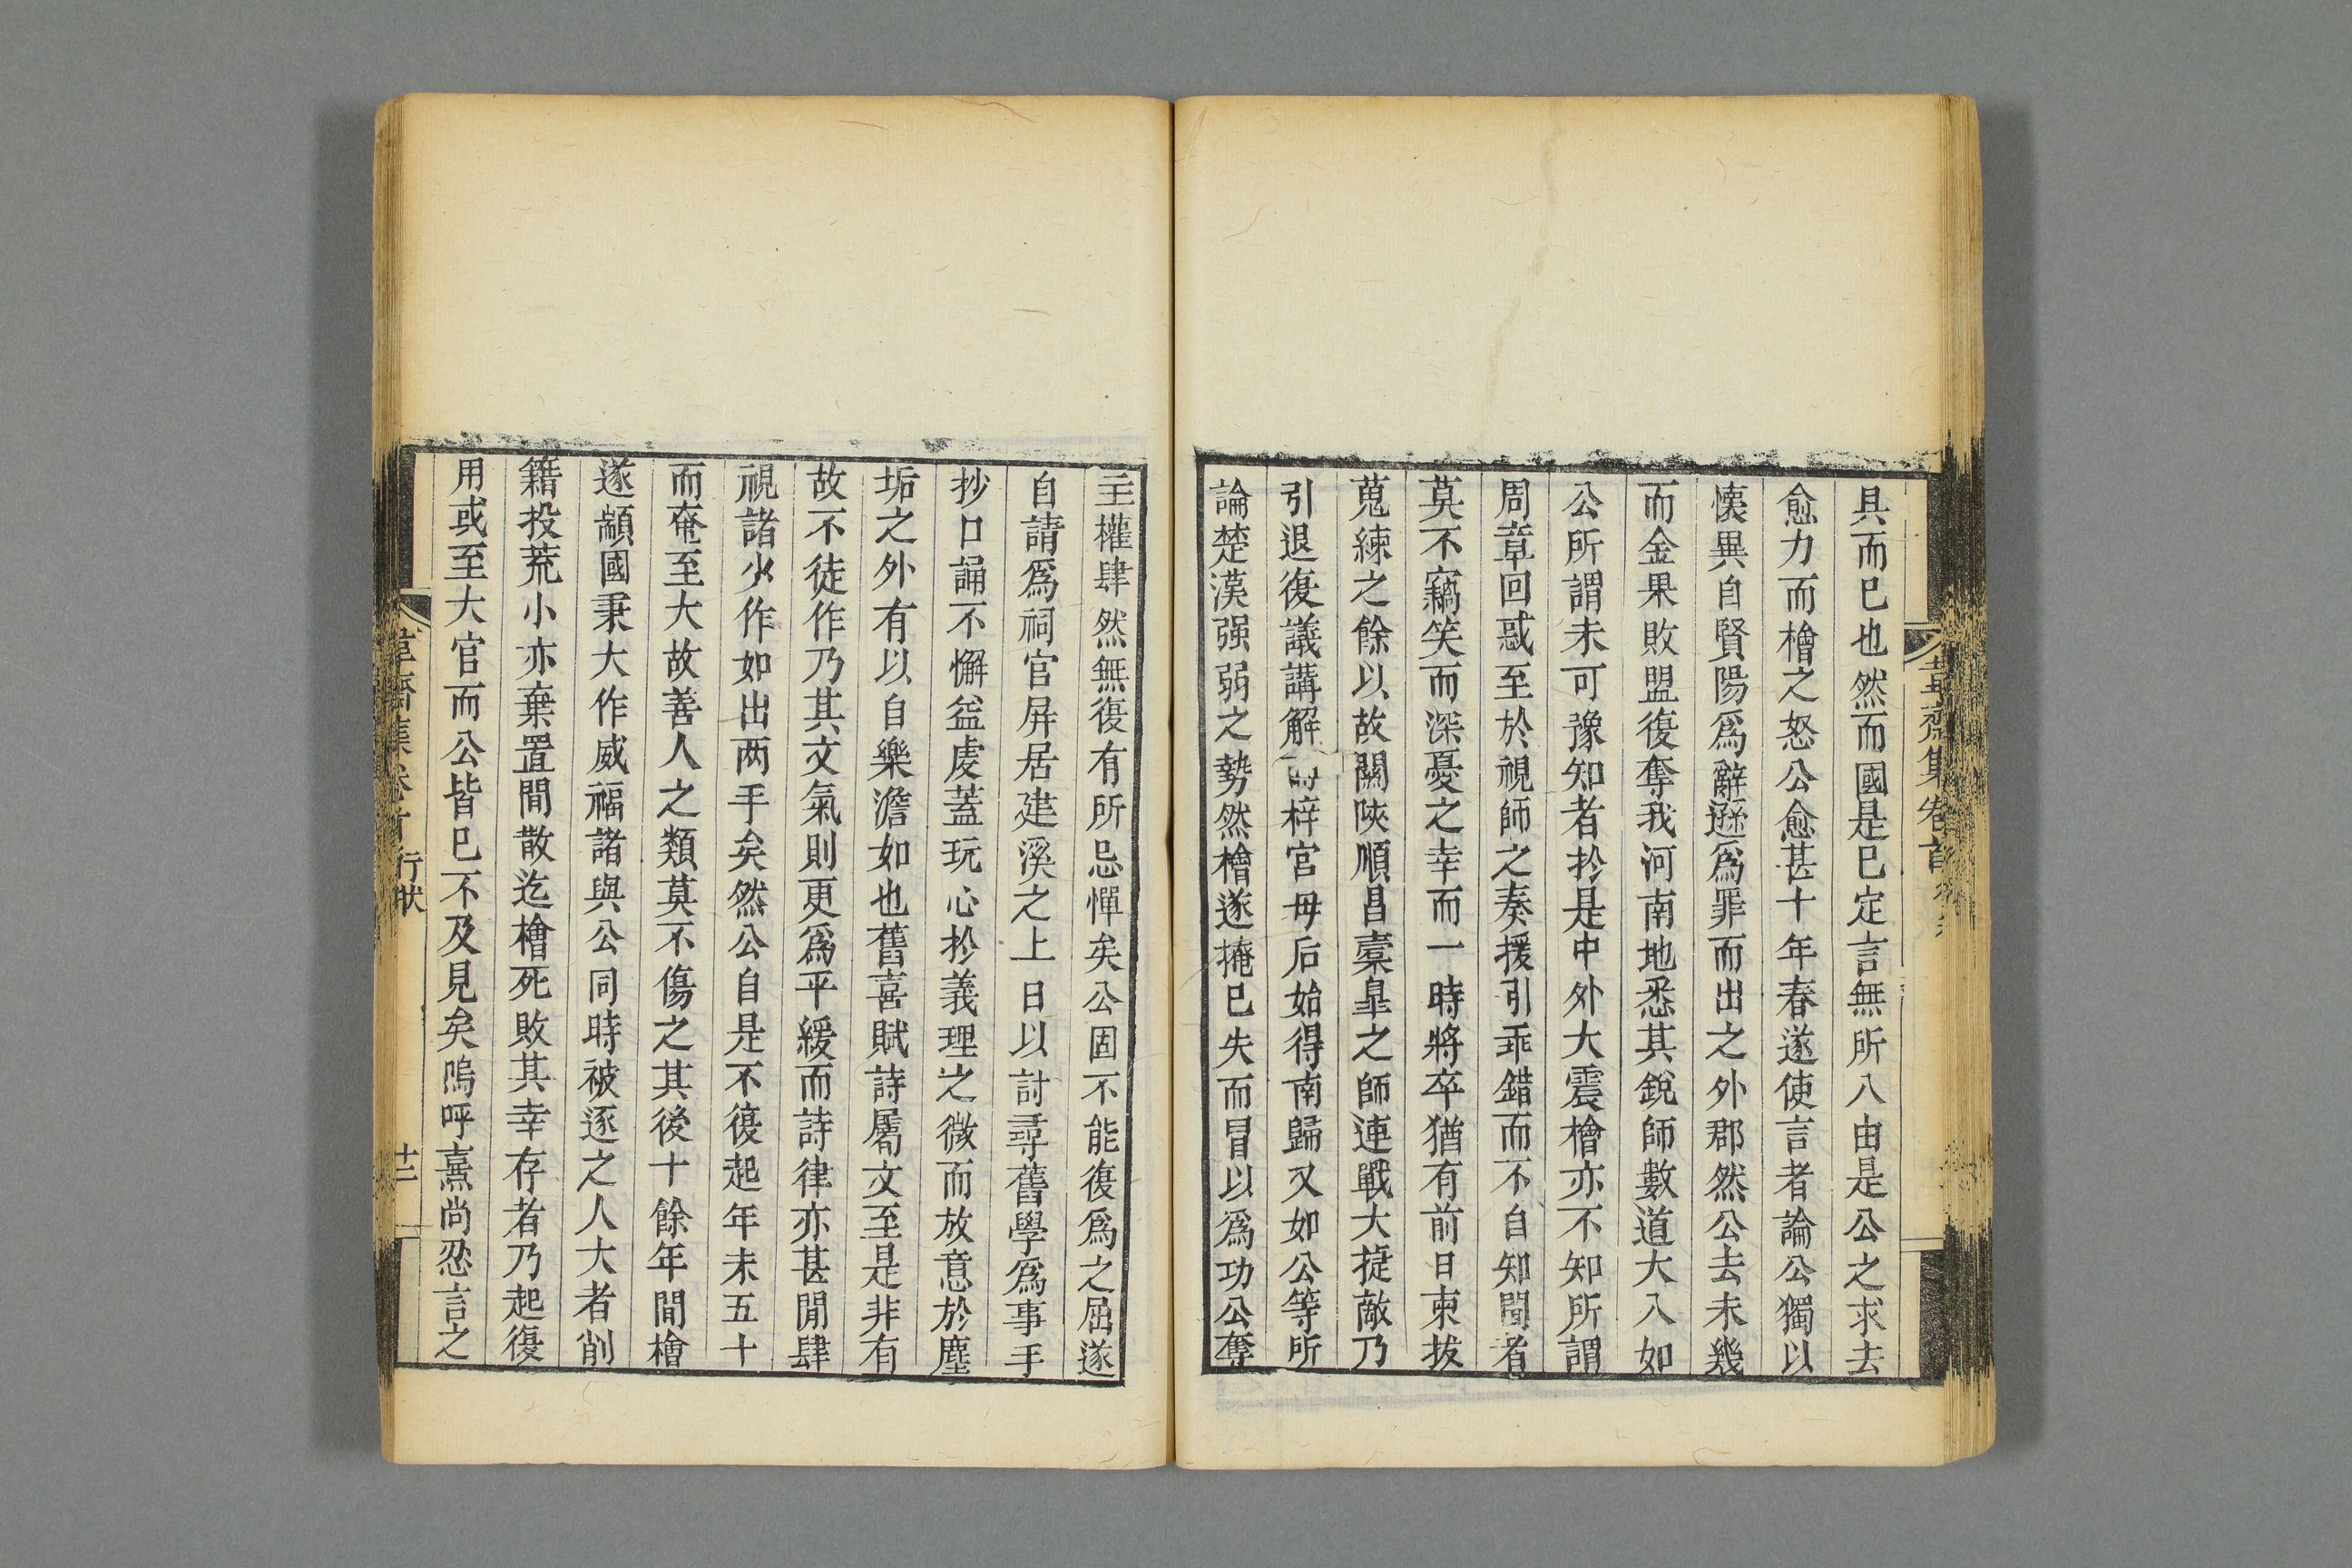 具而已也然而國是已定言無所入由是公之求去
愈力而檜之怒公愈甚十年春遂使言者論公獨以
懷異自賢陽爲辭遜爲罪而出之外郡然公去未幾
而金果敗盟復奪我河南地悉其銳師數道大入如
公所謂未可豫知者於是中外大震檜亦不知所謂
周章回惑至於視師之奏援引乖錯而不自知聞者
莫不竊笑而深憂之幸而一時將卒猶有前日東拔
蒐練之餘以故關陝順昌橐皐之師連戰大捷敵乃
引退復議講解而梓宮母后始得南歸又如公等所
論楚漢强弱之勢然檜遂掩已失而冒以爲功公奪
主權肆然無復有所忌憚矣公固不能復爲之屈遂
自請爲祠官屏居建溪之上日以討尋舊學爲事手
抄口誦不懈益虔蓋玩心於義理之微而放意於塵
垢之外有以自樂澹如也舊喜賦詩屬文至是非有
故不徒作乃其文氣則更爲平緩而詩律亦甚閒肆
視諸少作如出两手矣然公自是不復起年未五十
而奄至大故善人之類莫不傷之其後十餘年間檜
遂顓國秉大作威福諸與公同時被逐之人大者削
籍投荒小亦棄置閒散迄檜死敗其幸存者乃起復
用或至大官而公皆已不及見矣嗚呼熹尚忍言之
韋齋集卷首 行狀
十二
韋齋集卷首